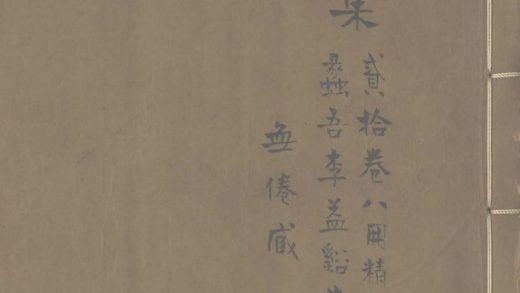 集
貳拾卷八冊精
蠡吾李益谿
無倦藏